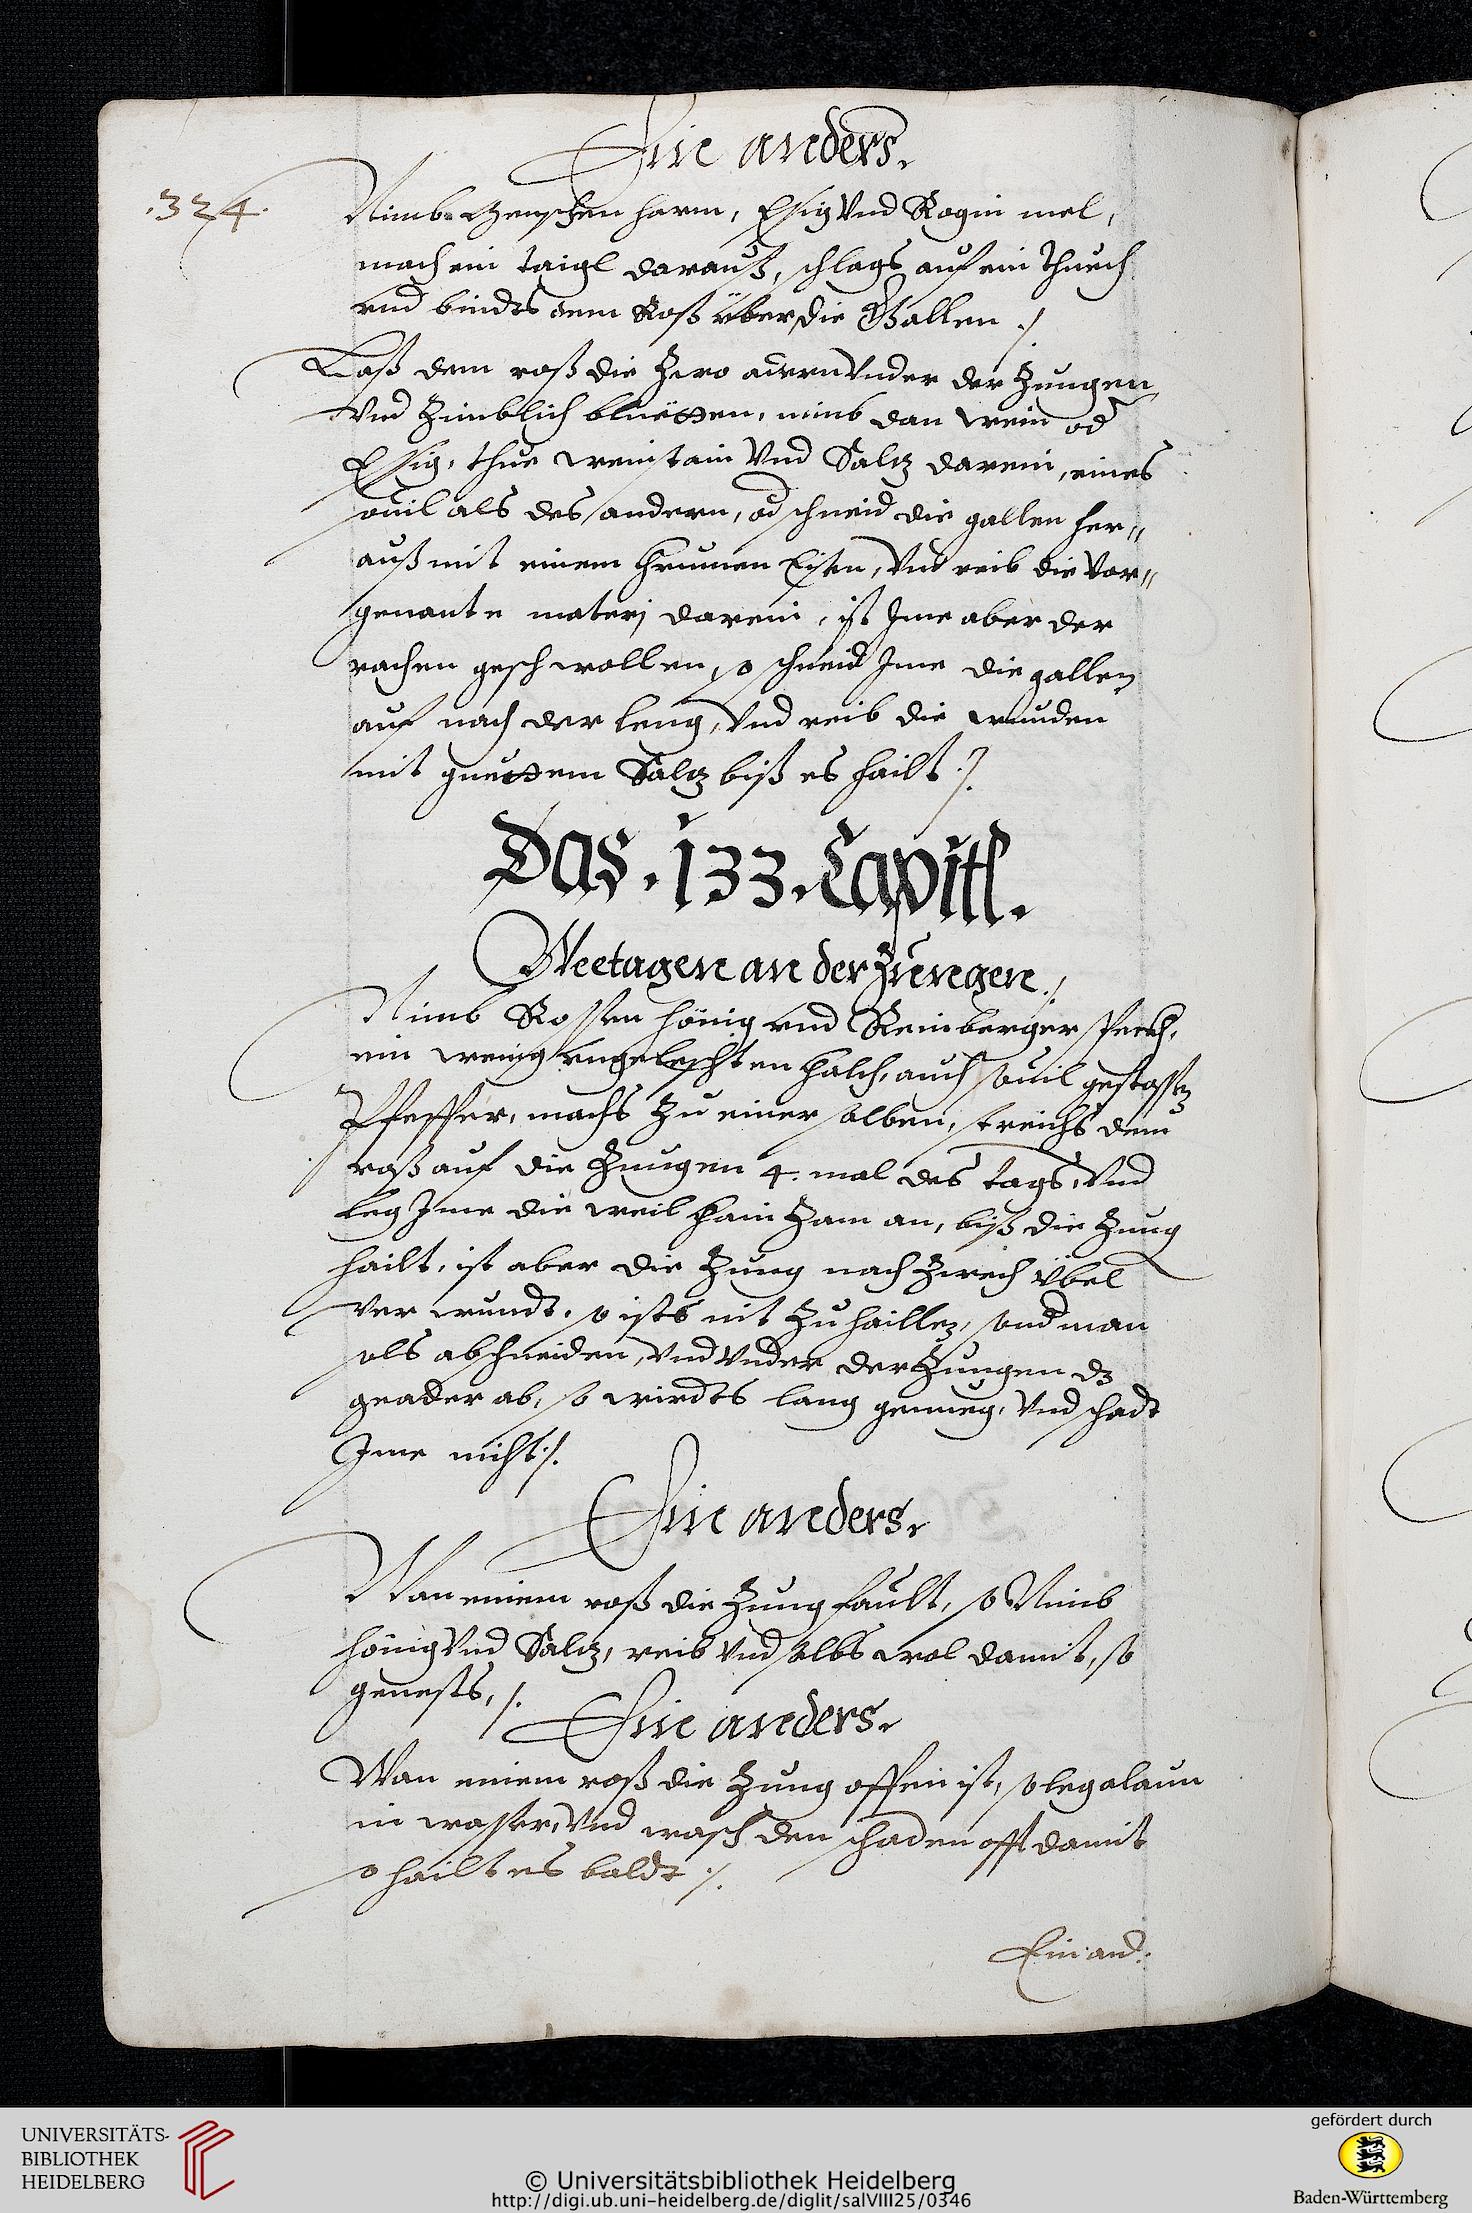 Ein anders.
.324.
Nimb Menschen harm, Essig Vnd Rogin mel,
mach ein taigl darauß, schlags auf ein Thuech
vnd bindts dem Roß über die Gallen ./
Laß dem roß die Zwo adern Vnder der Zungen
Vnd Zimblich bluetten, nimb dan wein od
Essig, thue weinstain Vnd Saltz darein, eines
souil als des andern, od schneid die gallen her„
auß mit einem krumen Eisen, Vnd reib die Vor„
genante materj darein, ist Ime aber der
rachen geschwollen, so schneid Ime die gallen
auf nach der leng, Vnd reib die wunden
mit guettem Saltz biß es hailt ./.
Das .133. Capitl.
Weetagen an der Zungen ./
Nimb Rossen hönig vnd Reinberger speckh,
ein wenig vngeleschten kalch, auch souil gestossen
Pfeffer, machs Zu einer salben, streichs dem
roß auf die Zungen 4. mal des tags, Vnd
leg Ime die weil kain Zam an, biß die Zung
hailt, ist aber die Zung nach Zwerch übel
verwundt, so ists nit Zu haillen, sond man
sols abschneiden, Vnd Vnder der Zungen dz
geader ab, so wirdts lang genueg, Vnd schadt
Ime nicht ./.
Ein anders.
Wan einem roß die Zung fault, so Nimb
hönig Vnd Saltz, reib Vnd salbs wol damit, so
genests, ./.
Ein anders.
Wan einem roß die Zung offen ist, so leg alaun
in wasser, Vnd wasch den schaden offt damit
so hailt es baldt ./.
Ein and:
UNIVERSITÄTS-
BIBLIOTHEK
HEIDELBERG
© Universitätsbibliothek Heidelberg
http://digi.ub.uni-heidelberg.de/diglit/salVIII25/0346
gefördert durch
Baden-Württemberg